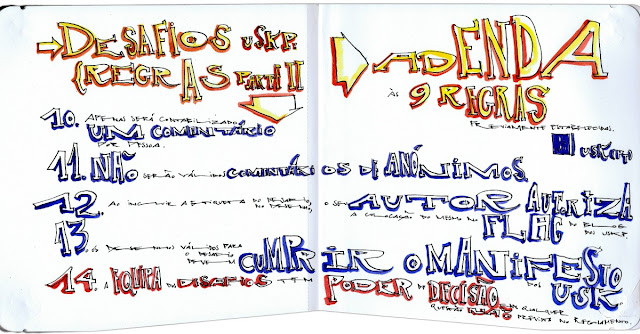 DESAFIOS USKP.
(REGRAS PARTE II
ADENDA
ÀS 9 REGRAS
PREVIAMENTE
10. APENAS SERÁ CONTABILIZADO
UM COMENTÁRIO
POR PESSOA.
11. NÃO SERÃO VÁLIDOS COMENTÁRIOS DE ANÓNIMOS.
12. AO INCLUIR A ETIQUETA DO DESAFIO, NO DESENHO, O SEU AUTOR AUTORIZA
A COLOCAÇÃO DO MESMO NO FLAG DO BLOG DOS USKP.
13. OS DESENHOS VÁLIDOS PARA
O DESAFIO
DEVERÃO CUMPRIR O MANIFESTO DOS USK.
14. A EQUIPA DOS DESAFIOS TEM PODER DE DECISÃO EM QUALQUER
QUESTÃO NO REGULAMENTO.